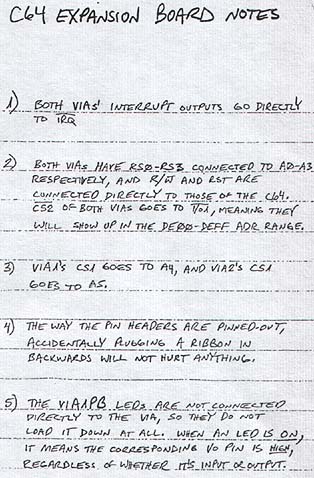 C64 EXPANSION BOARD NOTES
1) BOTH VIAs' INTERRUPT OUTPUTS GO DIRECTLY
TO I̅R̅Q̅
2) BOTH VIAs HAVE RS0-RS3 CONNECTED TO A0-A3
RESPECTIVELY, AND R/W̅ AND RST ARE
CONNECTED DIRECTLY TO THOSE OF THE C64.
CS2 OF BOTH VIAs GOES TO I/O1, MEANING THEY
WILL SHOW UP IN THE DE00-DEFF ADR RANGE.
3) VIA1's CS1 GOES TO A4, AND VIA2's CS1
GOES TO A5.
4) THE WAY THE PIN HEADERS ARE PINNED-OUT,
ACCIDENTALLY PLUGGING A RIBBON IN
BACKWARDS WILL NOT HURT ANYTHING.
5) THE VIA1PB LEDs ARE NOT CONNECTED
DIRECTLY TO THE VIA, SO THEY DO NOT
LOAD IT DOWN AT ALL. WHEN AN LED IS ON,
IT MEANS THE CORRESPONDING I/O PIN IS HIGH,
REGARDLESS OF WHETHER IT'S INPUT OR OUTPUT.